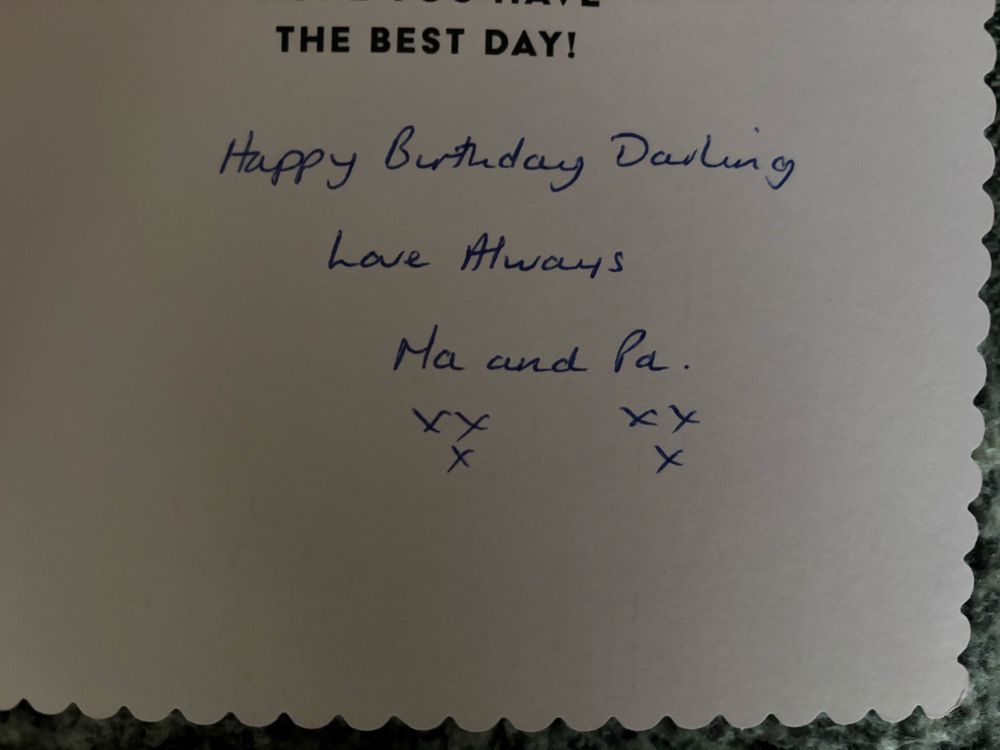 YOU HAVE
THE BEST DAY!
Happy Birthday Darling
Love Always
Ma and Pa.
xx xx
x x